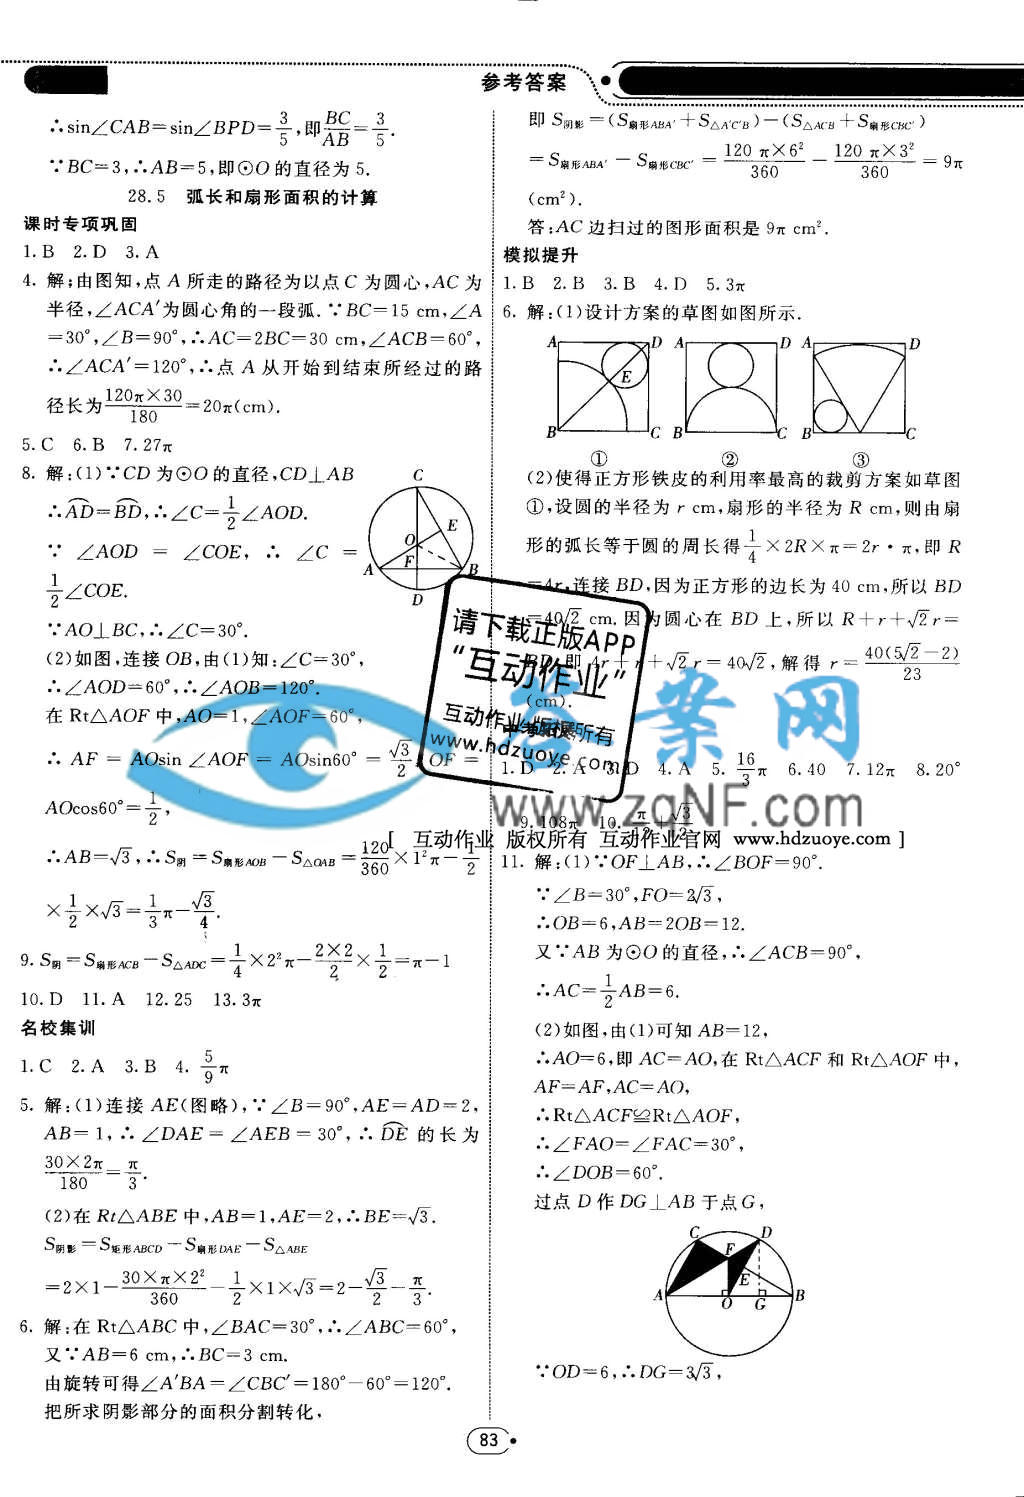 参考答案
∴sin∠CAB=sin∠BPD=3/5,即BC/AB=3/5.
∵BC=3,∴AB=5,即⊙O的直径为5.
28.5 弧长和扇形面积的计算
课时专项巩固
1.B 2.D 3.A
4. 解:由图知,点 A 所走的路径为以点 C 为圆心,AC 为
半径,∠ACA′为圆心角的一段弧.∵BC=15 cm,∠A
=30°,∠B=90°,∴AC=2BC=30 cm,∠ACB=60°,
∴∠ACA′=120°,∴点 A 从开始到结束所经过的路
径长为120π×30/180=20π(cm).
5.C 6.B 7.27π
8. 解:(1)∵CD为⊙O的直径,CD⊥AB
∴A͡D=B͡D,∴∠C=1/2∠AOD.
∵ ∠AOD = ∠COE, ∴ ∠C =
1/2∠COE.
∵AO⊥BC,∴∠C=30°.
(2)如图,连接OB,由(1)知:∠C=30°,
∴∠AOD=60°,∴∠AOB=120°.
在Rt△AOF中,AO=1,∠AOF=60°,
∴ AF = AOsin ∠AOF = AOsin60° = √3/2, OF =
AOcos60°=1/2,
∴AB=√3,∴S阴=S扇形AOB−S△OAB=120/360×1²π−1/2
×1/2×√3=1/3π−√3/4.
9. S阴=S扇形ACB−S△ADC=1/4×2²π−2×2/2×1/2=π−1
10.D 11.A 12.25 13.3π
名校集训
1.C 2.A 3.B 4. 5/9π
5. 解:(1)连接 AE(图略),∵∠B=90°,AE=AD=2,
AB=1,∴∠DAE=∠AEB=30°,∴D͡E 的长为
30×2π/180=π/3.
(2)在 Rt△ABE 中,AB=1,AE=2,∴BE=√3.
S阴影=S矩形ABCD−S扇形DAE−S△ABE
=2×1−30×π×2²/360−1/2×1×√3=2−√3/2−π/3.
6. 解:在 Rt△ABC 中,∠BAC=30°,∴∠ABC=60°,
又∵AB=6 cm,∴BC=3 cm.
由旋转可得∠A′BA=∠CBC′=180°−60°=120°.
把所求阴影部分的面积分割转化,
C
O
E
F
A
B
D
即 S阴影=(S扇形ABA′+S△A′C′B)−(S△ACB+S扇形CBC′)
=S扇形ABA′−S扇形CBC′=120 π×6²/360−120 π×3²/360=9π
(cm²).
答:AC 边扫过的图形面积是 9π cm².
模拟提升
1.B 2.B 3.B 4.D 5.3π
6. 解:(1)设计方案的草图如图所示.
A D A D A D
E
B C B C B C
① ② ③
(2)使得正方形铁皮的利用率最高的裁剪方案如草图
①,设圆的半径为 r cm,扇形的半径为 R cm,则由扇
形的弧长等于圆的周长得1/4×2R×π=2r·π,即 R
=4r,连接 BD,因为正方形的边长为 40 cm,所以 BD
=40√2 cm.因为圆心在 BD 上,所以 R+r+√2r=
BD,即 4r+r+√2r=40√2,解得 r=40(5√2−2)/23
(cm).
1.D 2.A 3.D 4.A 5. 16/3π 6.40 7.12π 8.20°
9.108π 10. π/12+√3/2
11. 解:(1)∵OF⊥AB,∴∠BOF=90°.
∵∠B=30°,FO=2√3,
∴OB=6,AB=2OB=12.
又∵AB为⊙O的直径,∴∠ACB=90°,
∴AC=1/2AB=6.
(2)如图,由(1)可知 AB=12,
∴AO=6,即 AC=AO,在 Rt△ACF 和 Rt△AOF 中,
AF=AF,AC=AO,
∴Rt△ACF≌Rt△AOF,
∴∠FAO=∠FAC=30°,
∴∠DOB=60°.
过点 D 作 DG⊥AB 于点G,
C D
F
E
A O G B
∵OD=6,∴DG=3√3,
83
请下载正版APP
“互动作业”
互动作业 版权所有
www.hdzuoye.com
答案网
www.zqNF.com
[ 互动作业 版权所有 互动作业官网 www.hdzuoye.com ]